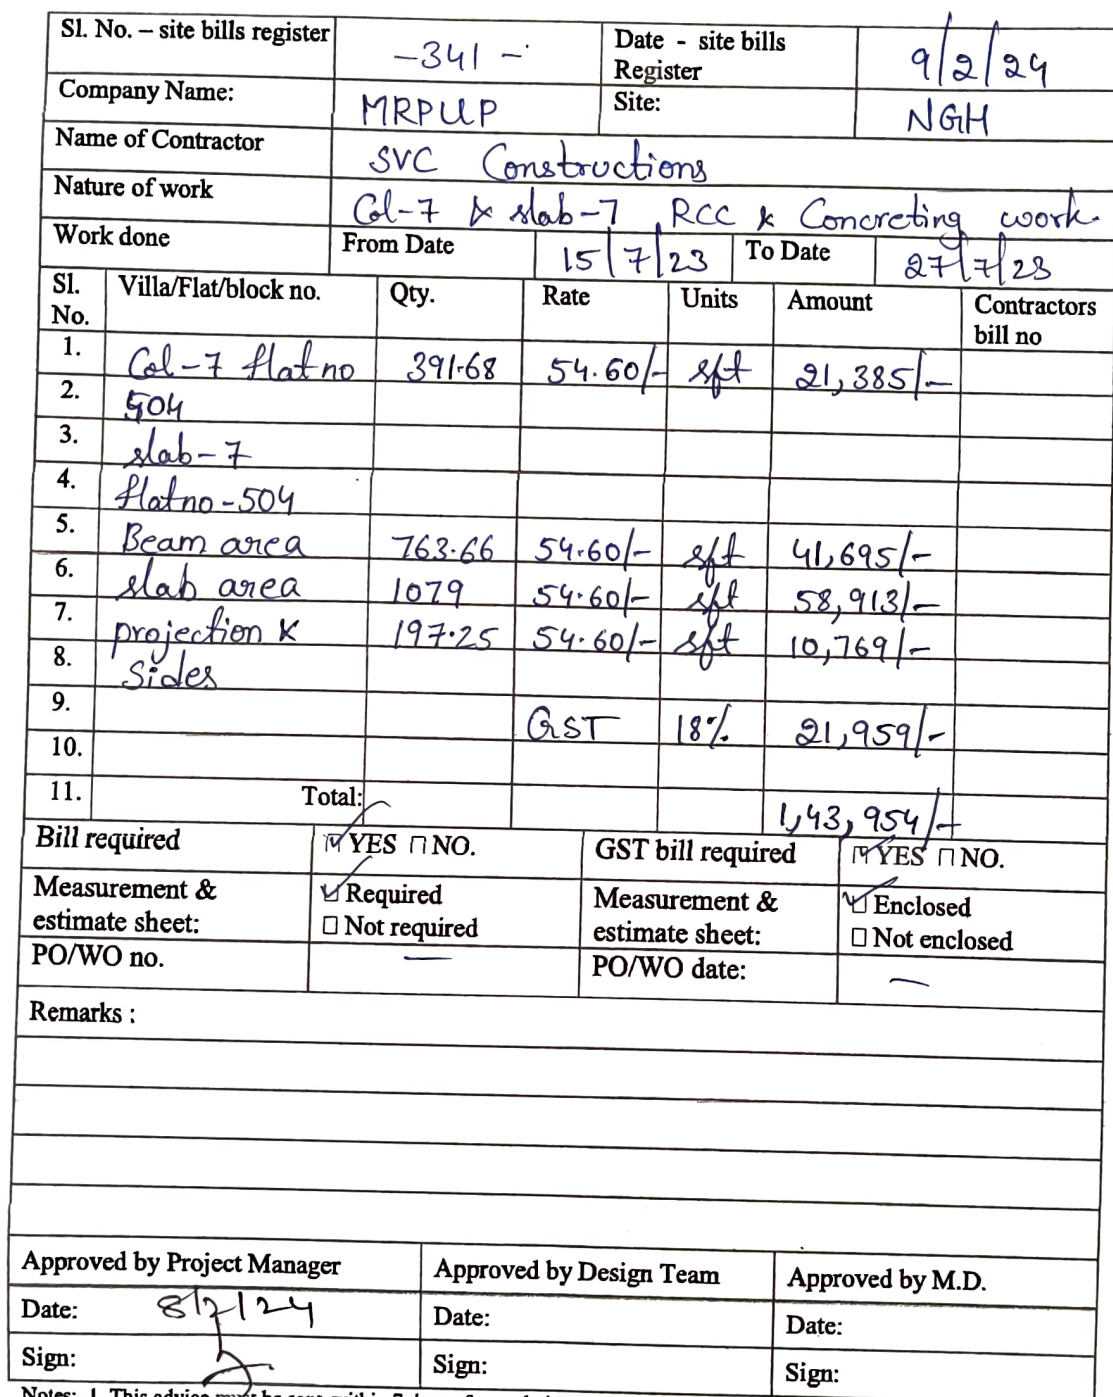 Sl. No. – site bills register -341- Date - site bills Register 9/2/24
Company Name: MRPLLP Site: NGH
Name of Contractor SVC Constructions
Nature of work Col-7 & slab-7 RCC & Concreting work
Work done From Date 15/7/23 To Date 27/7/23
Sl. No. Villa/Flat/block no. Qty. Rate Units Amount Contractors bill no
1. Col-7 flat no 391.68 54.60/- sft 21,385/-
2. 504
3. slab-7
4. flat no-504
5. Beam area 763.66 54.60/- sft 41,695/-
6. slab area 1079 54.60/- sft 58,913/-
7. projection & 197.25 54.60/- sft 10,769/-
8. Sides
9. GST 18% 21,959/-
10.
11. Total: 1,43,954/-
Bill required ☑ YES □ NO. GST bill required ☑ YES □ NO.
Measurement & estimate sheet: ☑ Required □ Not required Measurement & estimate sheet: ☑ Enclosed □ Not enclosed
PO/WO no. — PO/WO date: —
Remarks :
Approved by Project Manager Approved by Design Team Approved by M.D.
Date: 8/2/24 Date: Date:
Sign: Sign: Sign: